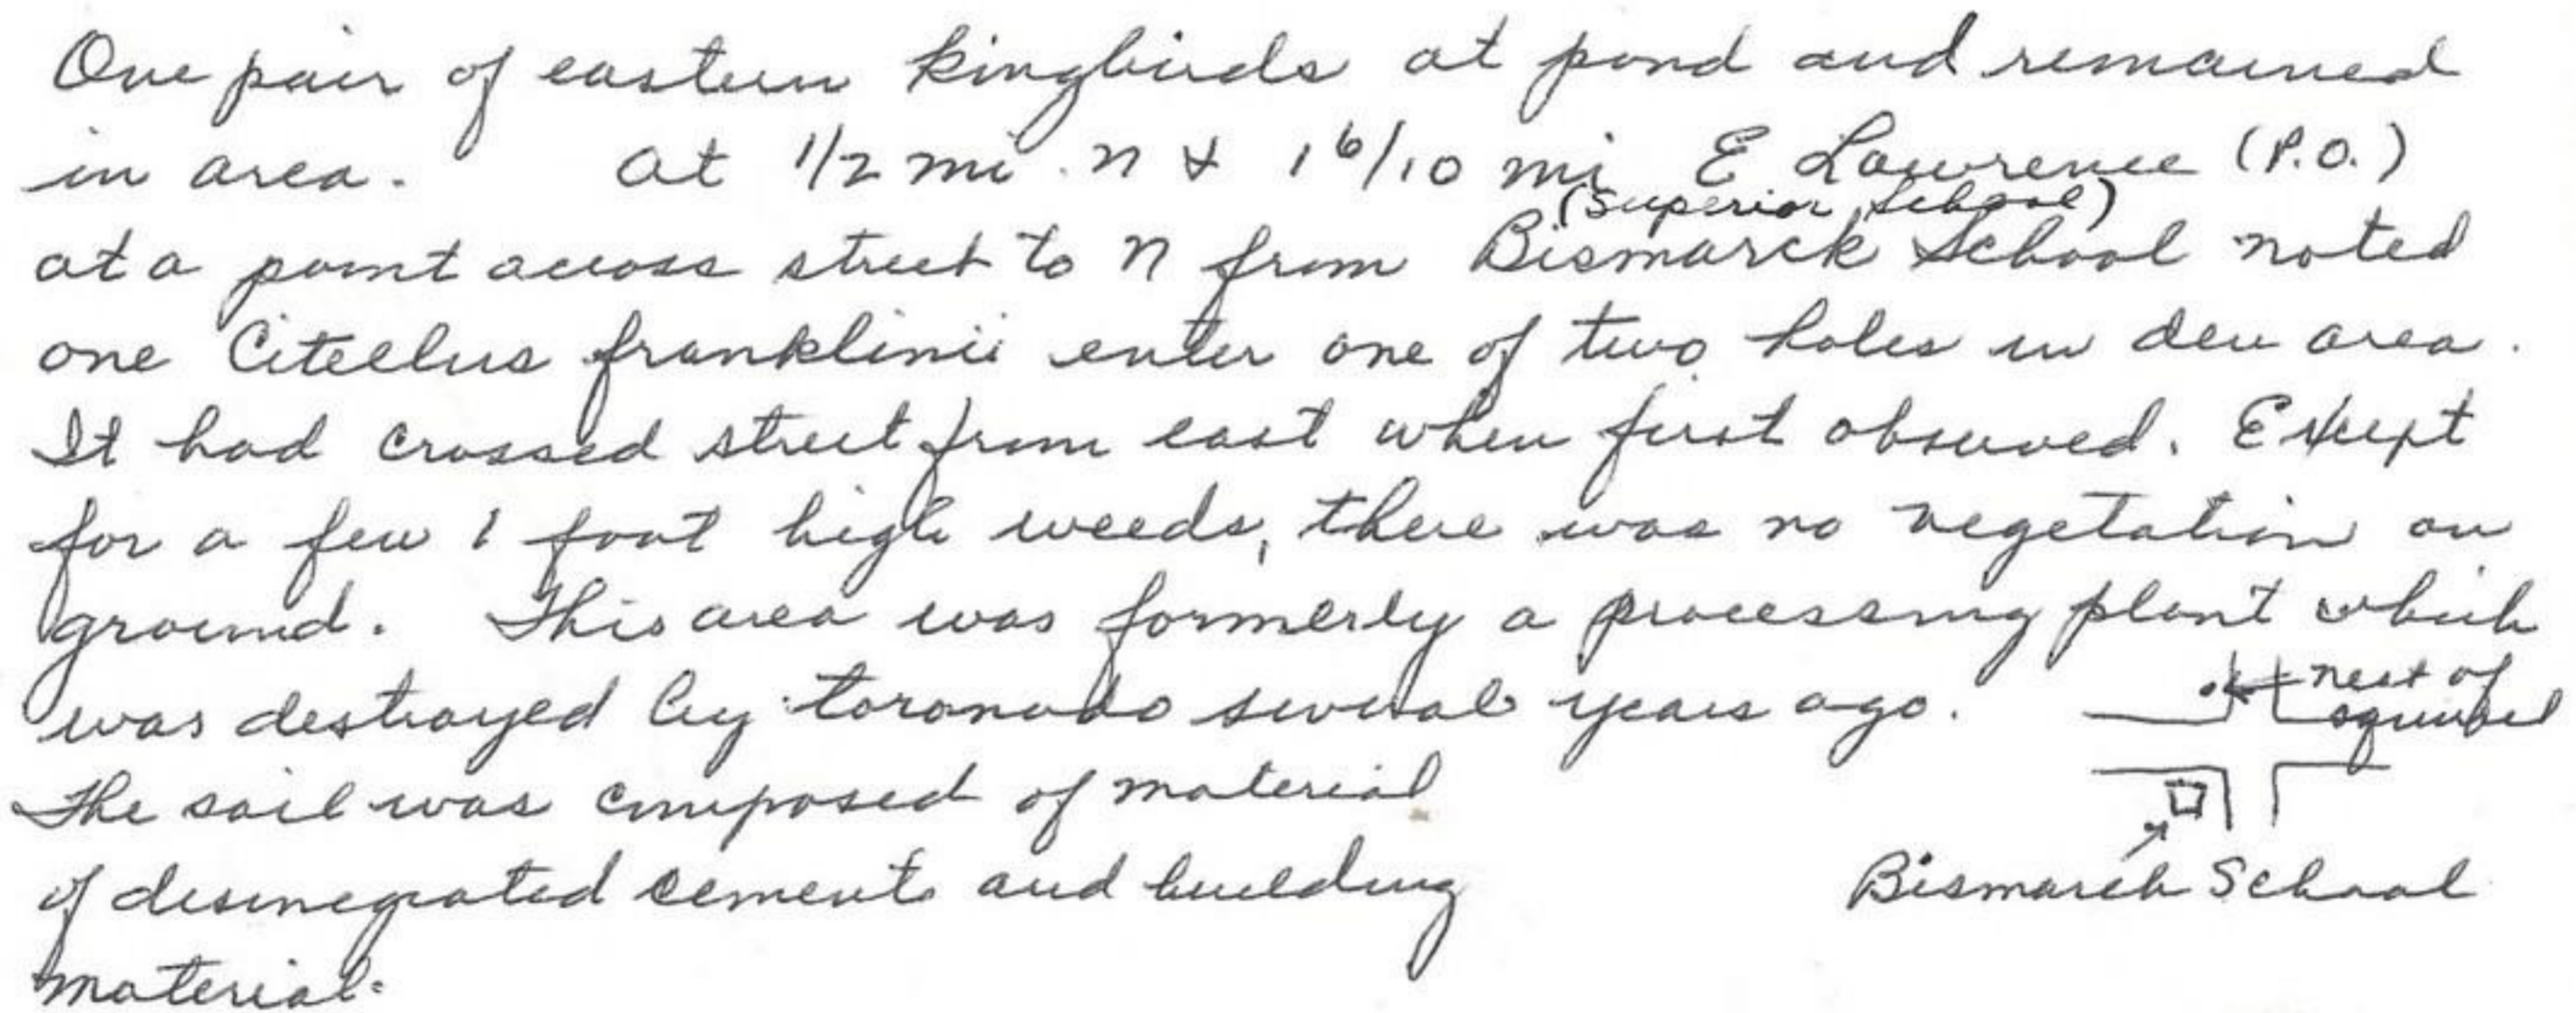 One pair of eastern kingbirds at pond and remained
in area. At 1/2 mi. N & 1 6/10 mi E Lawrence (P.O.)
(Superior School)
at a point across street to N from Bismarck School noted
one Citellus franklinii enter one of two holes in den area.
It had crossed street from east when first observed. Except
for a few 1 foot high weeds, there was no vegetation on
ground. This area was formerly a processing plant which
was destroyed by toronado several years ago.
nest of
squirrel
The soil was composed of material
of desinegrated cement and building
material.
Bismarck School